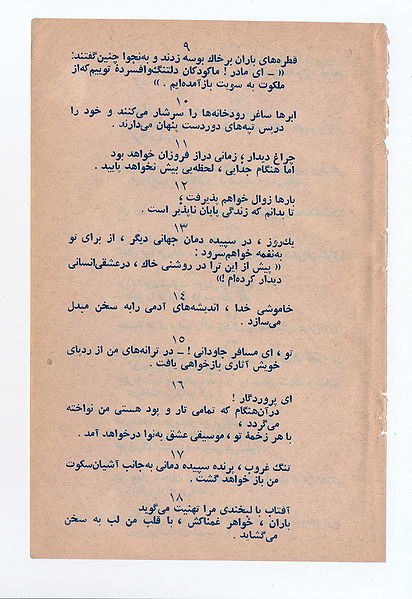 ۹
قطره‌های باران بر خاك بوسه زدند و به‌نجوا چنین گفتند:
(( – ای مادر! ما كودكان دلتنگ و افسردهٔ توییم كه از
ملكوت به سویت باز آمده‌ایم . ))
۱۰
ابرها ساغر رودخانه‌ها را سرشار می‌كنند و خود را
در پس تپه‌های دوردست پنهان می‌دارند .
۱۱
چراغ دیدار ، زمانی دراز فروزان خواهد بود
اما هنگام جدایی ، لحظه‌یی بیش نخواهد پایید .
۱۲
بارها زوال خواهم پذیرفت ؛
تا بدانم كه زندگی پایان ناپذیر است .
۱۳
یك‌روز ، در سپیده دمان جهانی دیگر ، از برای تو
به‌نغمه خواهم‌سرود :
(( پیش از این ترا در روشنی خاك ، در عشقی‌انسانی
دیدار كرده‌ام ! ))
۱٤
خاموشی خدا ، اندیشه‌های آدمی را به سخن مبدل
می‌سازد .
۱٥
تو ، ای مسافر جاودانی ! – در ترانه‌های من از ردپای
خویش آثاری بازخواهی یافت .
۱٦
ای پروردگار !
در آن‌هنگام كه تمامی تار و پود هستی من نواخته
می‌گردد ،
با هر زخمهٔ تو ، موسیقی عشق به‌نوا در خواهد آمد .
۱۷
تنگ غروب ، پرنده سپیده دمانی به‌جانب آشیان‌سكوت
من باز خواهد گشت .
۱۸
آفتاب با لبخندی مرا تهنیت می‌گوید
باران ، خواهر غمناكش ، با قلب من لب به سخن
می‌گشاید .